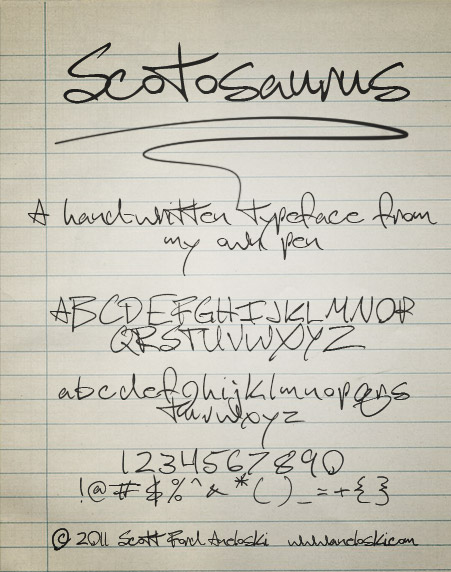 Scotosaurus
A handwritten typeface from
my own pen
ABCDEFGHIJKLMNOP
QRSTUVWXYZ
abcdefghijklmnopqrs
tuvwxyz
1234567890
!@#$%^&*()_=+{}
© 2011 Scott Ford Andoski www.andoski.com